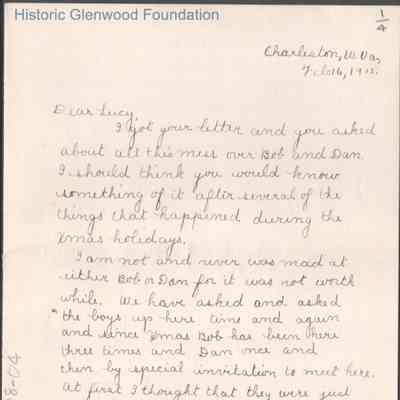 Historic Glenwood Foundation
1/4
Charleston, W. Va,
Feb 16, 1912.
Dear Lucy,
I got your letter and you asked
about all this mess over Bob and Dan
I should think you would know
something of it after several of the
things that happened during the
Xmas holidays.
I am not and never was mad at
either Bob or Dan for it was not worth
while. We have asked and asked
the boys up here time and again
and since Xmas Bob has been here
three times and Dan once and
then by special invitation to meet here.
At first I thought that they were just
8-04